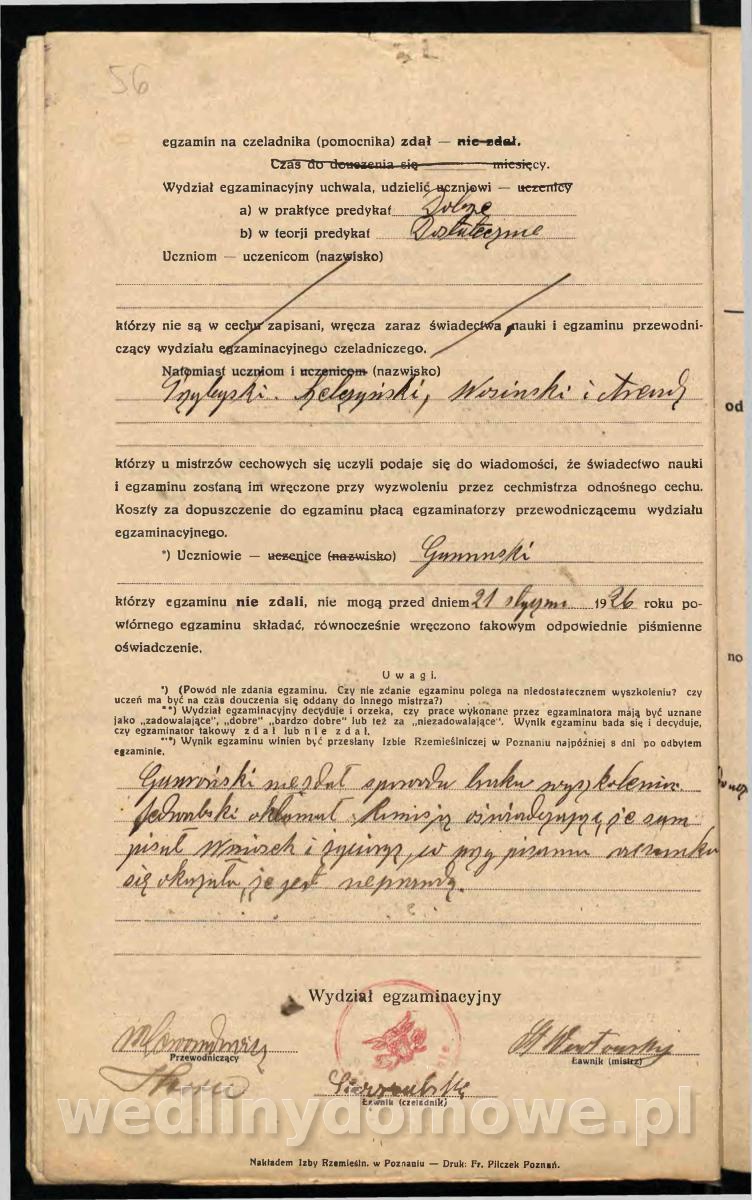 56
egzamin na czeladnika (pomocnika) zdał — nie zdał.
Czas do douczenia się miesięcy.
Wydział egzaminacyjny uchwala, udzielić uczniowi — uczenicy
a) w praktyce predykat Dobrze
b) w teorji predykat Dostatecznie
Uczniom — uczenicom (nazwisko)
którzy nie są w cechu zapisani, wręcza zaraz świadectwa nauki i egzaminu przewodni-
czący wydziału egzaminacyjnego czeladniczego.
Natomiast uczniom i uczenicom (nazwisko)
Wosinski i
którzy u mistrzów cechowych się uczyli podaje się do wiadomości, że świadectwo nauki
i egzaminu zostaną im wręczone przy wyzwoleniu przez cechmistrza odnośnego cechu.
Koszty za dopuszczenie do egzaminu płacą egzaminatorzy przewodniczącemu wydziału
egzaminacyjnego.
*) Uczniowie — uczenice (nazwisko)
którzy egzaminu nie zdali, nie mogą przed dniem 21 1926 roku po-
wtórnego egzaminu składać, równocześnie wręczono takowym odpowiednie piśmienne
oświadczenie.
Uwagi.
*) (Powód nie zdania egzaminu. Czy nie zdanie egzaminu polega na niedostatecznem wyszkoleniu? czy
uczeń ma być na czas douczenia się oddany do innego mistrza?)
**) Wydział egzaminacyjny decyduje i orzeka, czy prace wykonane przez egzaminatora mają być uznane
jako „zadowalające", „dobre" „bardzo dobre" lub też za „niezadowalające". Wynik egzaminu bada się i decyduje,
czy egzaminator takowy zdał lub nie zdał.
***) Wynik egzaminu winien być przesłany Izbie Rzemieślniczej w Poznaniu najpóźniej 8 dni po odbytem
egzaminie.
niezdał spowodu braku wyszkolenia.
okłamał Komisję oświadczając, że sam
pisał i życiorys, w
się okazało, że jest nieprawdą.
Wydział egzaminacyjny
Przewodniczący
Ławnik (mistrz)
Ławnik (czeladnik)
wedlinydomowe.pl
Nakładem Izby Rzemieśln. w Poznaniu — Druk: Fr. Pilczek Poznań.
od
no